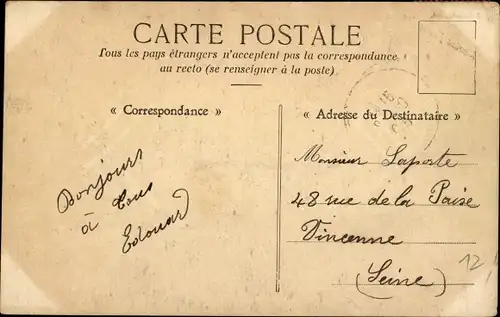 CARTE POSTALE
Tous les pays étrangers n'acceptent pas la correspondance
au recto (se renseigner à la poste)
« Correspondance »
« Adresse du Destinataire »
Bonjours
à tous
Edouard
Monsieur Laporte
48 rue de la Paise
Vincenne
(Seine)
12